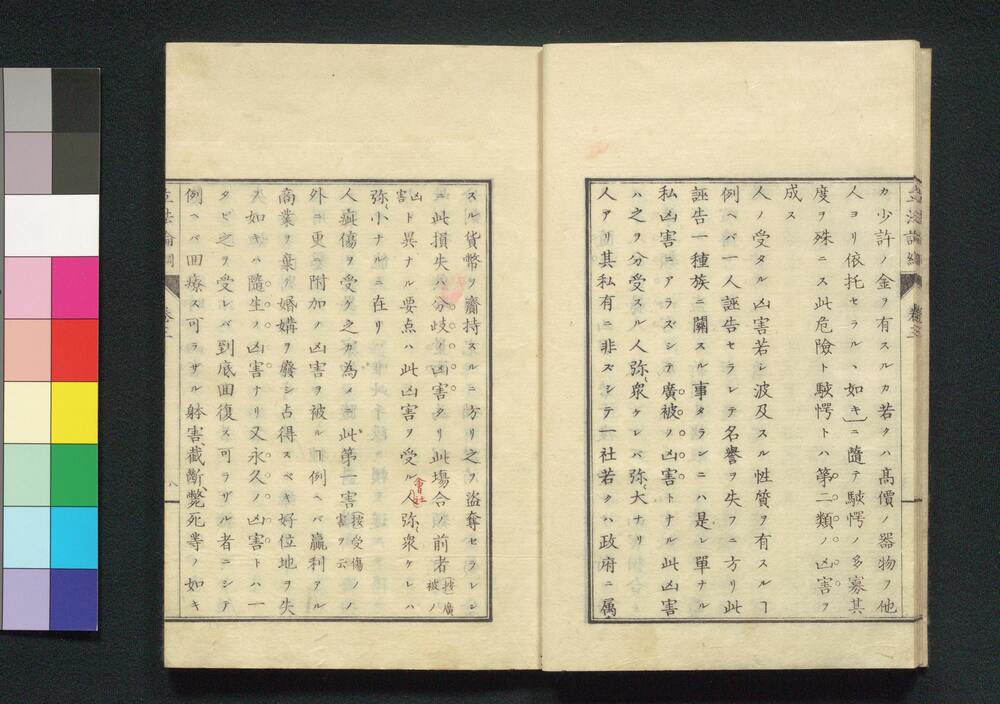 カ少許ノ金ヲ有スルカ若クハ髙價ノ器物ヲ他
人ヨリ依托セラル、如キニ隨テ駭愕ノ多寡其
度ヲ殊ニス此危險ト駭愕トハ第二類ノ凶害ヲ
成ス
人ノ受タル凶害若シ波及スル性質ヲ有スルヿ
例ヘバ一人誣告セラレテ名譽ヲ失フニ方リ此
誣告一種族ニ關スル事タランニハ是レ單ナル
私凶害ニアラズシテ廣被ノ凶害トナル此凶害
ハ之ヲ分受スル人弥衆ケレバ弥大ナリ
人アリ其私有ニ非ズシテ一社若クハ政府ニ属
スル貨幣ヲ齎持スルニ方リ之ヲ盜奪セラレン
ニ此損失ハ分歧ノ凶害タリ此塲合ノ前者按廣被ノ
凶害ト異ナル要点ハ此凶害ヲ受ル人會社弥衆ケレハ
弥小ナルニ在リ
人疵傷ヲ受ケ之カ為メニ此第一害按受傷ノ害ヲ云ノ
外ニ更ニ附加ノ凶害ヲ被ルヿ例ヘバ贏利アル
商業ヲ棄テ婚媾ヲ廢シ占得スベキ好位地ヲ失
フ如キハ隨生ノ凶害ナリ又永久ノ凶害トハ一
タビ之ヲ受レバ到底囬復ス可ラザル者ニシテ
例ヘバ囬療ス可ラザル躰害、截斷、斃死等ノ如キ